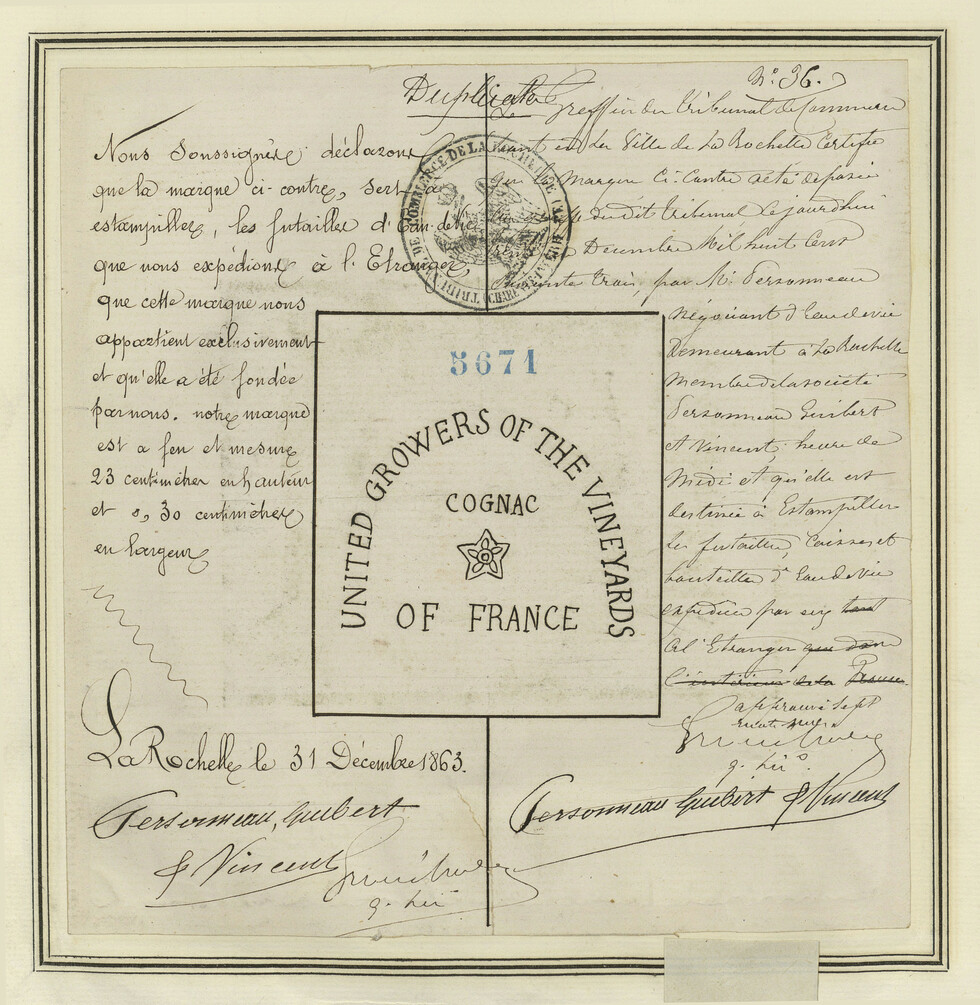 Duplicata
N.º 36.
Nous soussignés déclarons
que la marque ci-contre, sert à
estampiller, les futailles d'Eau-de-vie
que nous expédions à l'Etranger,
que cette marque nous
appartient exclusivement
et qu'elle a été fondée
par nous. notre marque
est a feu et mesure
23 centimètres en hauteur
et 0,30 centimètres
en largeur
La Rochelle le 31 Décembre 1863.
Personneau, Guibert
& Vincent
g. hier
TRIBUNAL DE COMMERCE DE LA ROCHELLE
(CHARENTE INF.RE)
5671
UNITED GROWERS OF THE VINEYARDS
COGNAC
OF FRANCE
Greffier du Tribunal de Commerce
séant en la Ville de La Rochelle Certifie
que la Marque Ci-Contre a été déposée
du dit tribunal le jourdhui
Décembre Mil huit Cent
soixante trois, par Mr. Personneau
Négociant d'Eau de vie
Demeurant à La Rochelle
Membre de la société
Personneau Guibert
et Vincent, heure de
Midi et qu'elle est
destinée à Estamper
les futailles, Caisses et
bouteilles d'Eau de vie
expédiées par eux tant
à l'Etranger que dans
l'intérieur de la France.
approuvé sept
mots nuls
g. hier
Personneau Guibert & Vincent